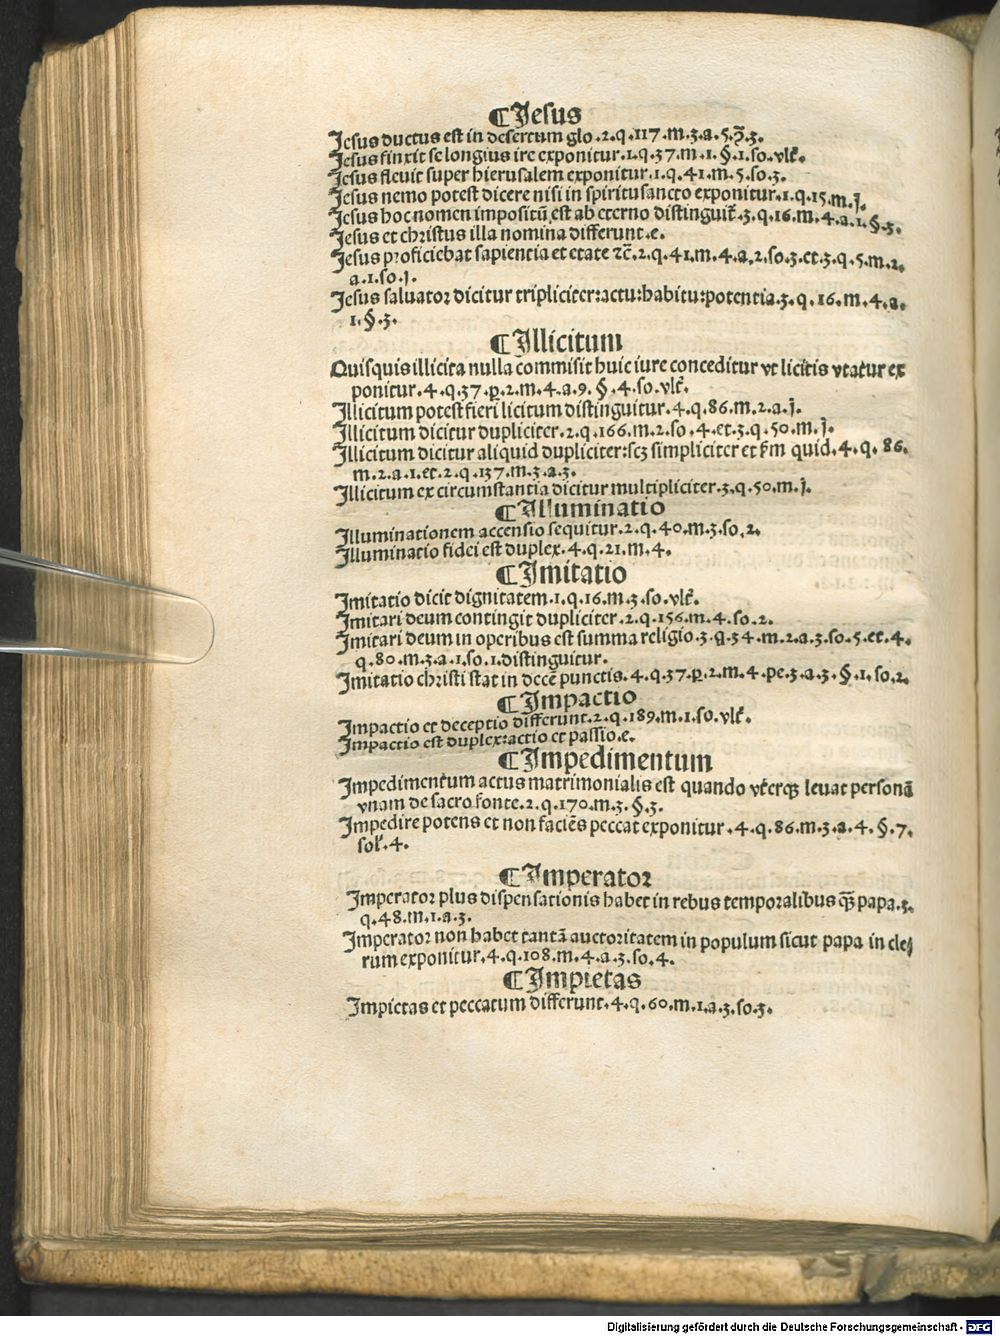 ¶Jesus
Jesus ductus est in desertum glo.2.q.117.m.3.a.5.p̄.3.
Jesus finxit se longius ire exponitur.1.q.37.m.1.§.1.so.vlt̄.
Jesus fleuit super hierusalem exponitur.1.q.41.m.5.so.3.
Jesus nemo potest dicere nisi in spiritusancto exponitur.1.q.15.m.j.
Jesus hoc nomen impositū est ab eterno distinguit̄.3.q.16.m.4.a.1.§.3.
Jesus et christus illa nomina differunt.e.
Jesus proficiebat sapientia et etate ⁊c̄.2.q.41.m.4.a.2.so.3.et.3.q.5.m.2.
a.1.so.j.
Jesus saluator dicitur tripliciter:actu:habitu:potentia.3.q.16.m.4.a.
1.§.3.
¶Jllicitum
Quisquis illicita nulla commisit huic iure conceditur vt licitis vtatur ex
ponitur.4.q.37.p.2.m.4.a.9.§.4.so.vlt̄.
Jllicitum potest fieri licitum distinguitur.4.q.86.m.2.a.j.
Jllicitum dicitur dupliciter.2.q.166.m.2.so.4.et.3.q.50.m.j.
Jllicitum dicitur aliquid dupliciter:scꝫ simpliciter et ẜm quid.4.q.86.
m.2.a.1.et.2.q.137.m.3.a.3.
Jllicitum ex circumstantia dicitur multipliciter.3.q.50.m.j.
¶Jlluminatio
Jlluminationem accensio sequitur.2.q.40.m.3.so.2.
Jlluminatio fidei est duplex.4.q.21.m.4.
¶Jmitatio
Jmitatio dicit dignitatem.1.q.16.m.3.so.vlt̄.
Jmitari deum contingit dupliciter.2.q.156.m.4.so.2.
Jmitari deum in operibus est summa religio.3.q.54.m.2.a.3.so.5.et.4.
q.80.m.3.a.1.so.1.distinguitur.
Jmitatio christi stat in decē punctis.4.q.37.p.2.m.4.pe.3.a.3.§.1.so.2.
¶Jmpactio
Jmpactio et deceptio differunt.2.q.189.m.1.so.vlt̄.
Jmpactio est duplex:actio et passio.e.
¶Jmpedimentum
Jmpedimentum actus matrimonialis est quando vterqꝫ leuat personā
vnam de sacro fonte.2.q.170.m.3.§.3.
Jmpedire potens et non faciēs peccat exponitur.4.q.86.m.3.a.4.§.7.
sol̄.4.
¶Jmperator
Jmperator plus dispensationis habet in rebus temporalibus qꝫ̄ papa.3.
q.48.m.1.a.3.
Jmperator non habet tantā auctoritatem in populum sicut papa in cle
rum exponitur.4.q.108.m.4.a.3.so.4.
¶Jmpietas
Jmpietas et peccatum differunt.4.q.60.m.1.a.3.so.3.
Digitalisierung gefördert durch die Deutsche Forschungsgemeinschaft - DFG